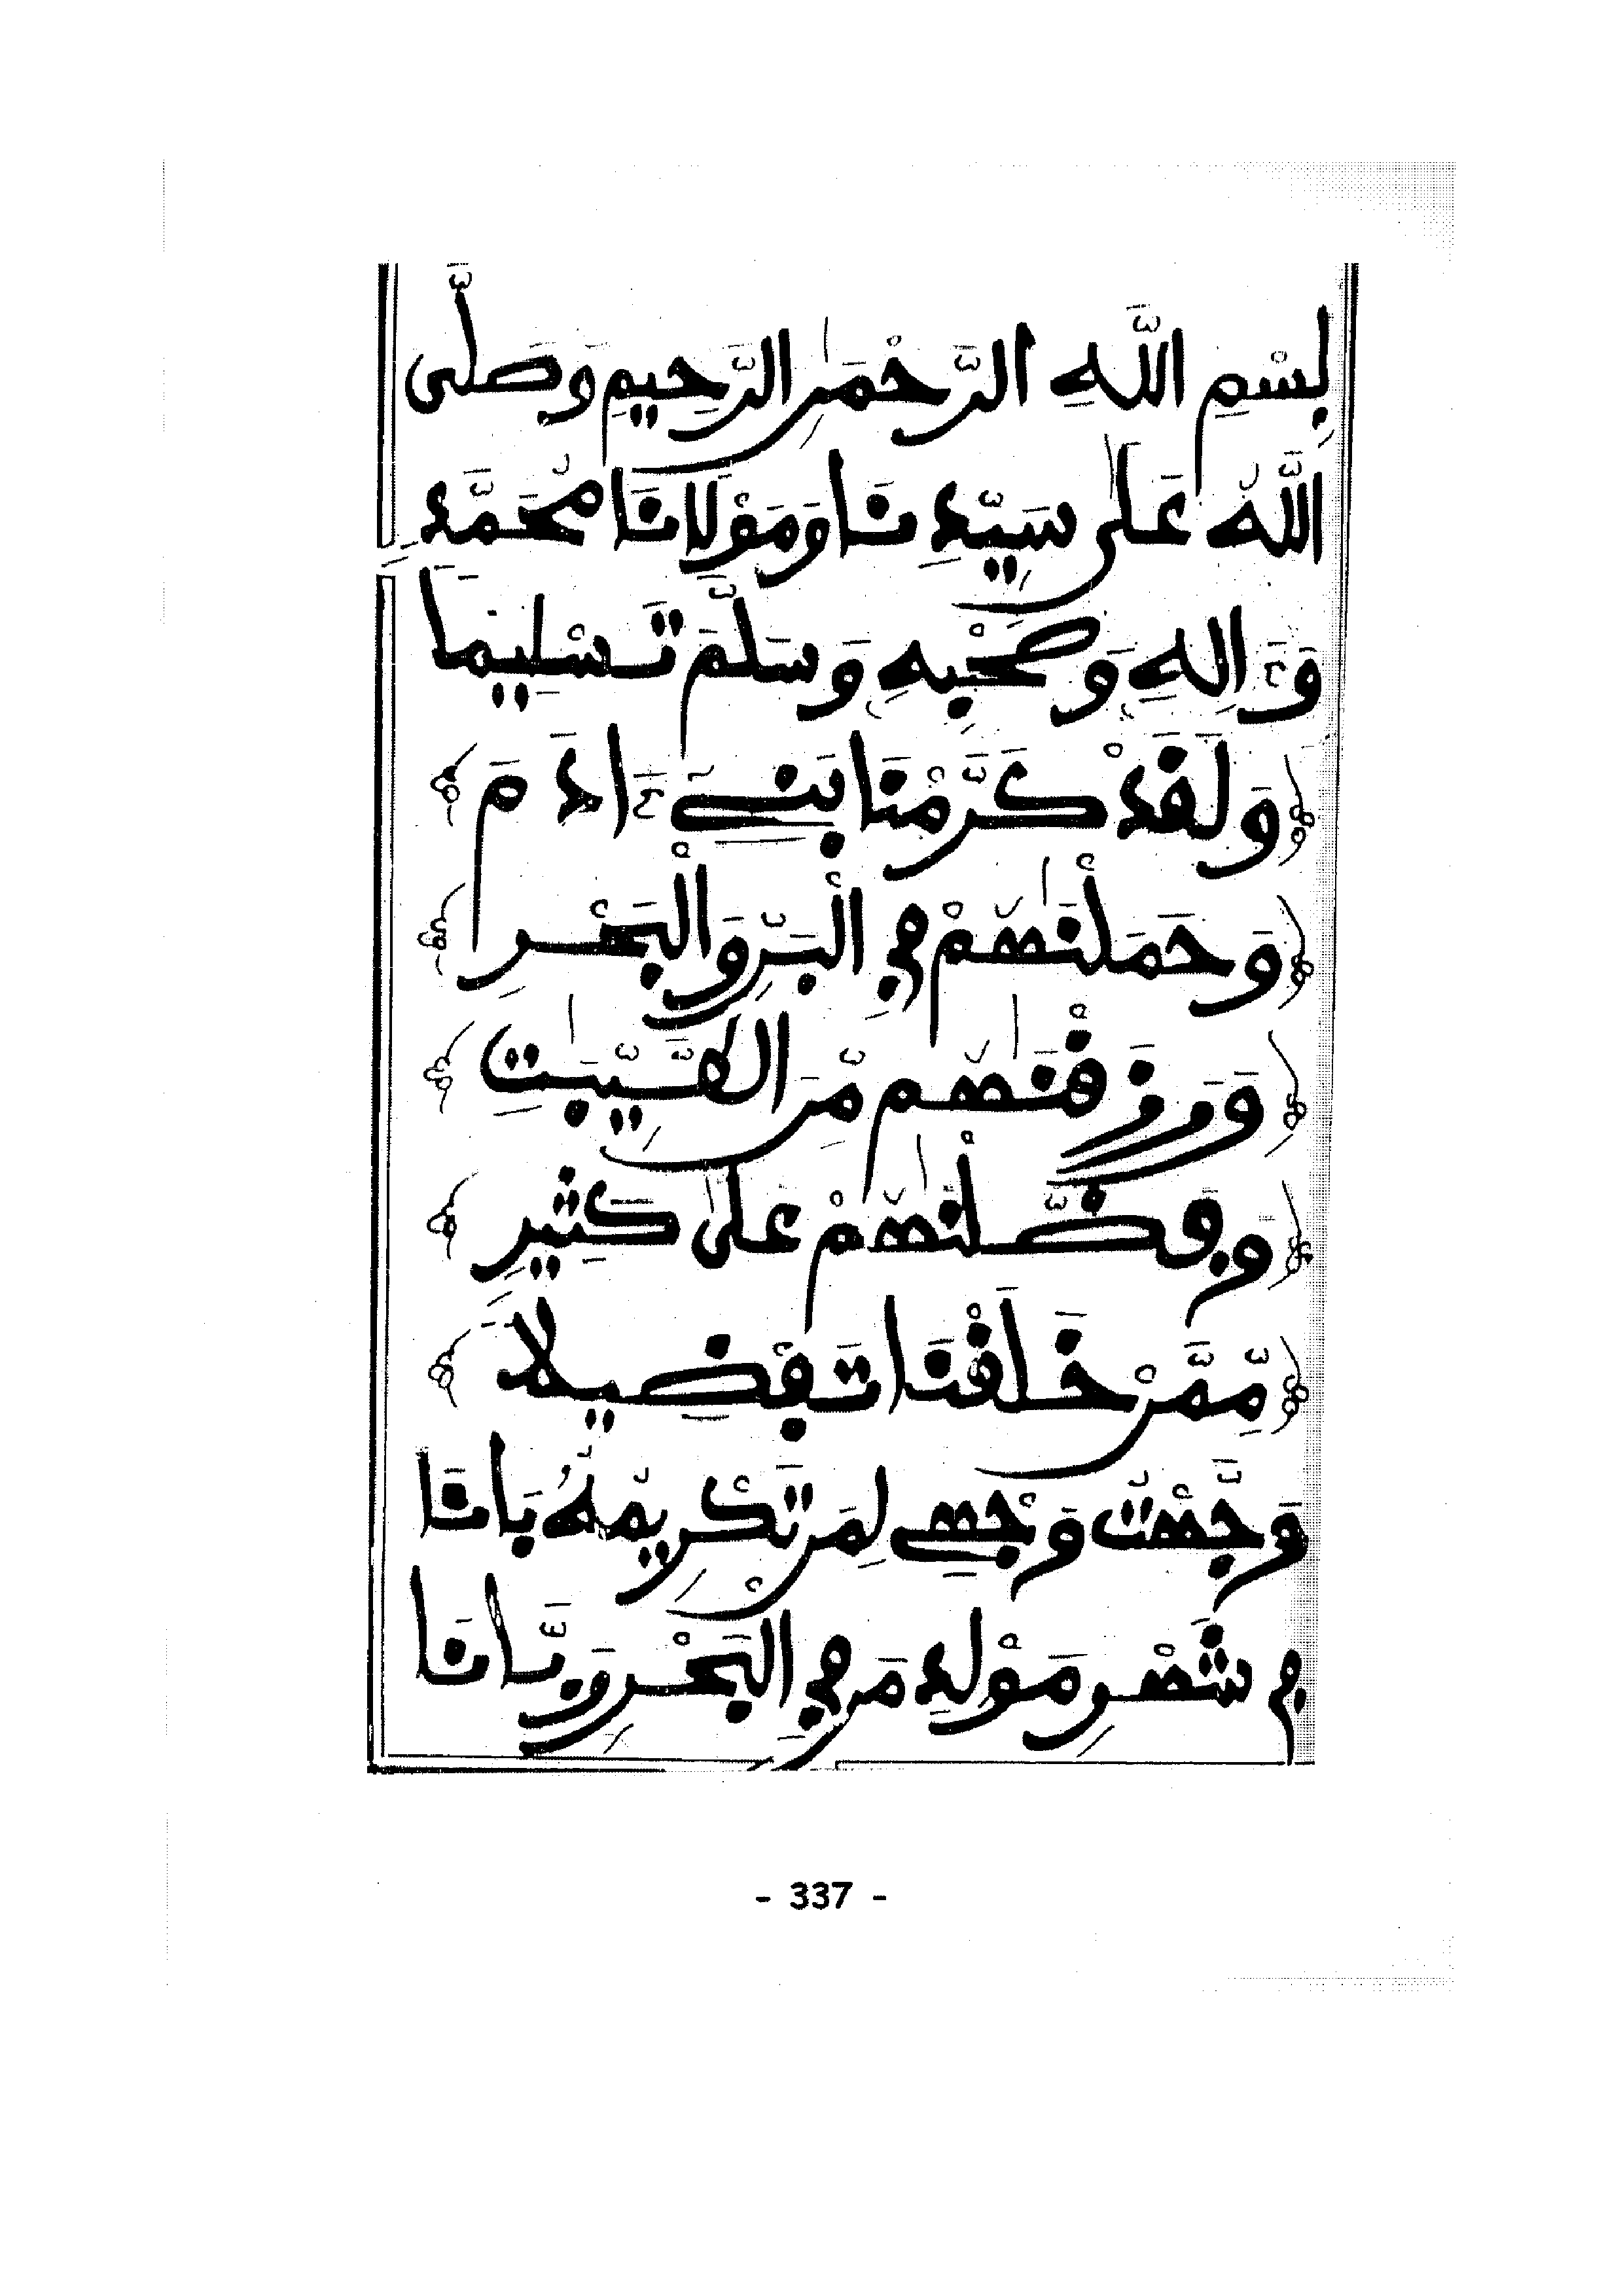 بِسْمِ اللَّهِ الرَّحْمَٰنِ الرَّحِيمِ وَصَلَّى
اللَّهُ عَلَى سَيِّدِنَا وَمَوْلَانَا مُحَمَّدٍ
وَءَالِهِ وَصَحْبِهِ وَسَلَّمَ تَسْلِيمًا
وَلَقَدْ كَرَّمْنَا بَنِي ءَادَمَ
وَحَمَلْنَٰهُمْ فِي الْبَرِّ وَالْبَحْرِ
وَرَزَقْنَٰهُم مِّنَ الطَّيِّبَٰتِ
وَفَضَّلْنَٰهُمْ عَلَىٰ كَثِيرٍ
مِّمَّنْ خَلَقْنَا تَفْضِيلًا
وَجَّهْتُ وَجْهِي لِمَن تَكْرِيمُهُ بَانَا
فِي شَهْرِ مَوْلِدِ مَن فِي الْبَحْرِ رَبَّانَا
- 337 -